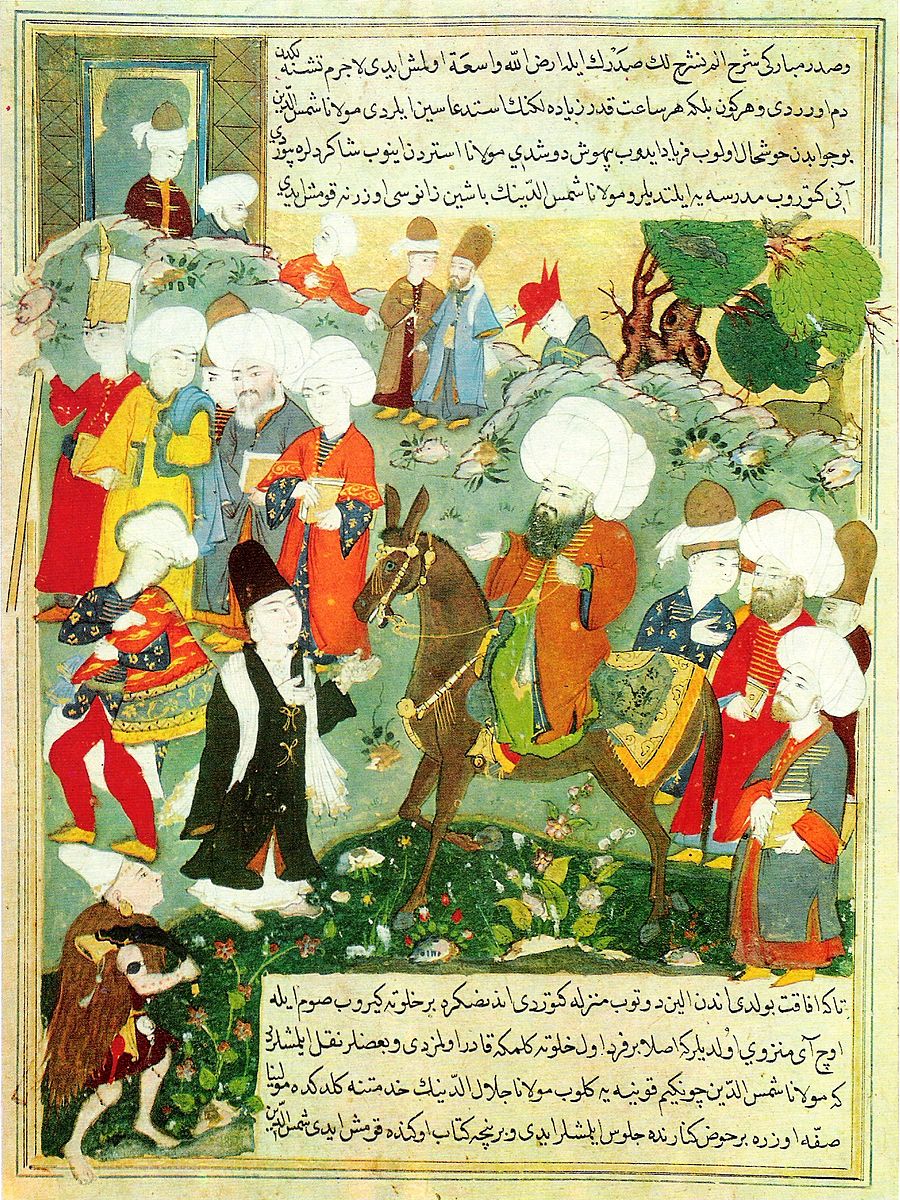 وصدر مبارکی شرح الم نشرح لك صدرك ایله ارض الله واسعة اولمش ایدی لاجرم تشنه لكدن
دم اوردی و هر كون بلكه هر ساعت قدر زیاده لكنك استدعاسین ایلردی مولانا شمس الدّین
بو جوابدن خوشحال اولوب فریاد ایدوب بیهوش دوشدی مولانا استردن اینوب شاكردلره بیوردی
آنی كتوروب مدرسه یه ایلتدیلر و مولانا شمس الدّینك باشین زانوسی اوزرنه قومش ایدی
تا كه افاقت بولدی اندن الین دوتوب منزله كتوردی اندنصكره بر خلوته كیروب صوم ایله
اوچ آی منزوی اولدیلر كه اصلا بر فرد اول خلوته كلمكه قادر اولمزدی و بعضلر نقل ایلمشلردر
كه مولانا شمس الدّین چونكیم قونیه یه كلوب مولانا جلال الدّینك خدمتنه كلدكده مولینا
صفّه اوزره بر حوض كنارنده جلوس ایلمشلر ایدی و بر نیچه كتاب اوكنده قومش ایدی شمس الدّین